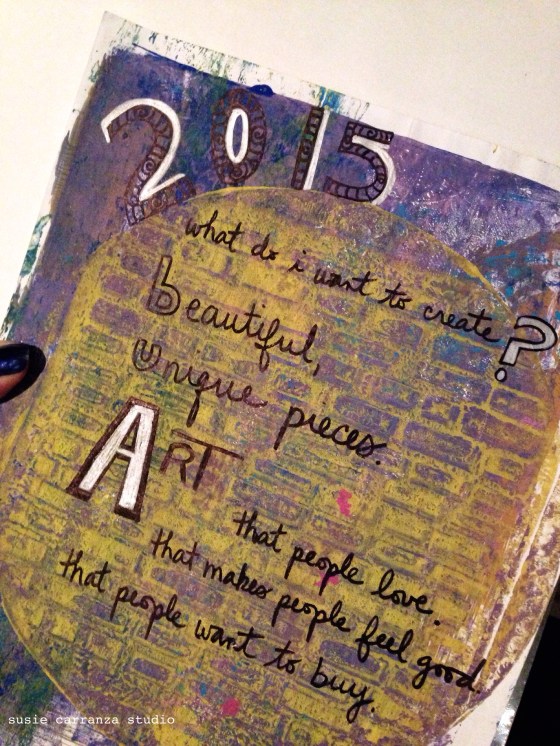 2015
what do i want to create?
beautiful,
unique pieces.
ART
that people love.
that makes people feel good.
that people want to buy.
susie carranza studio